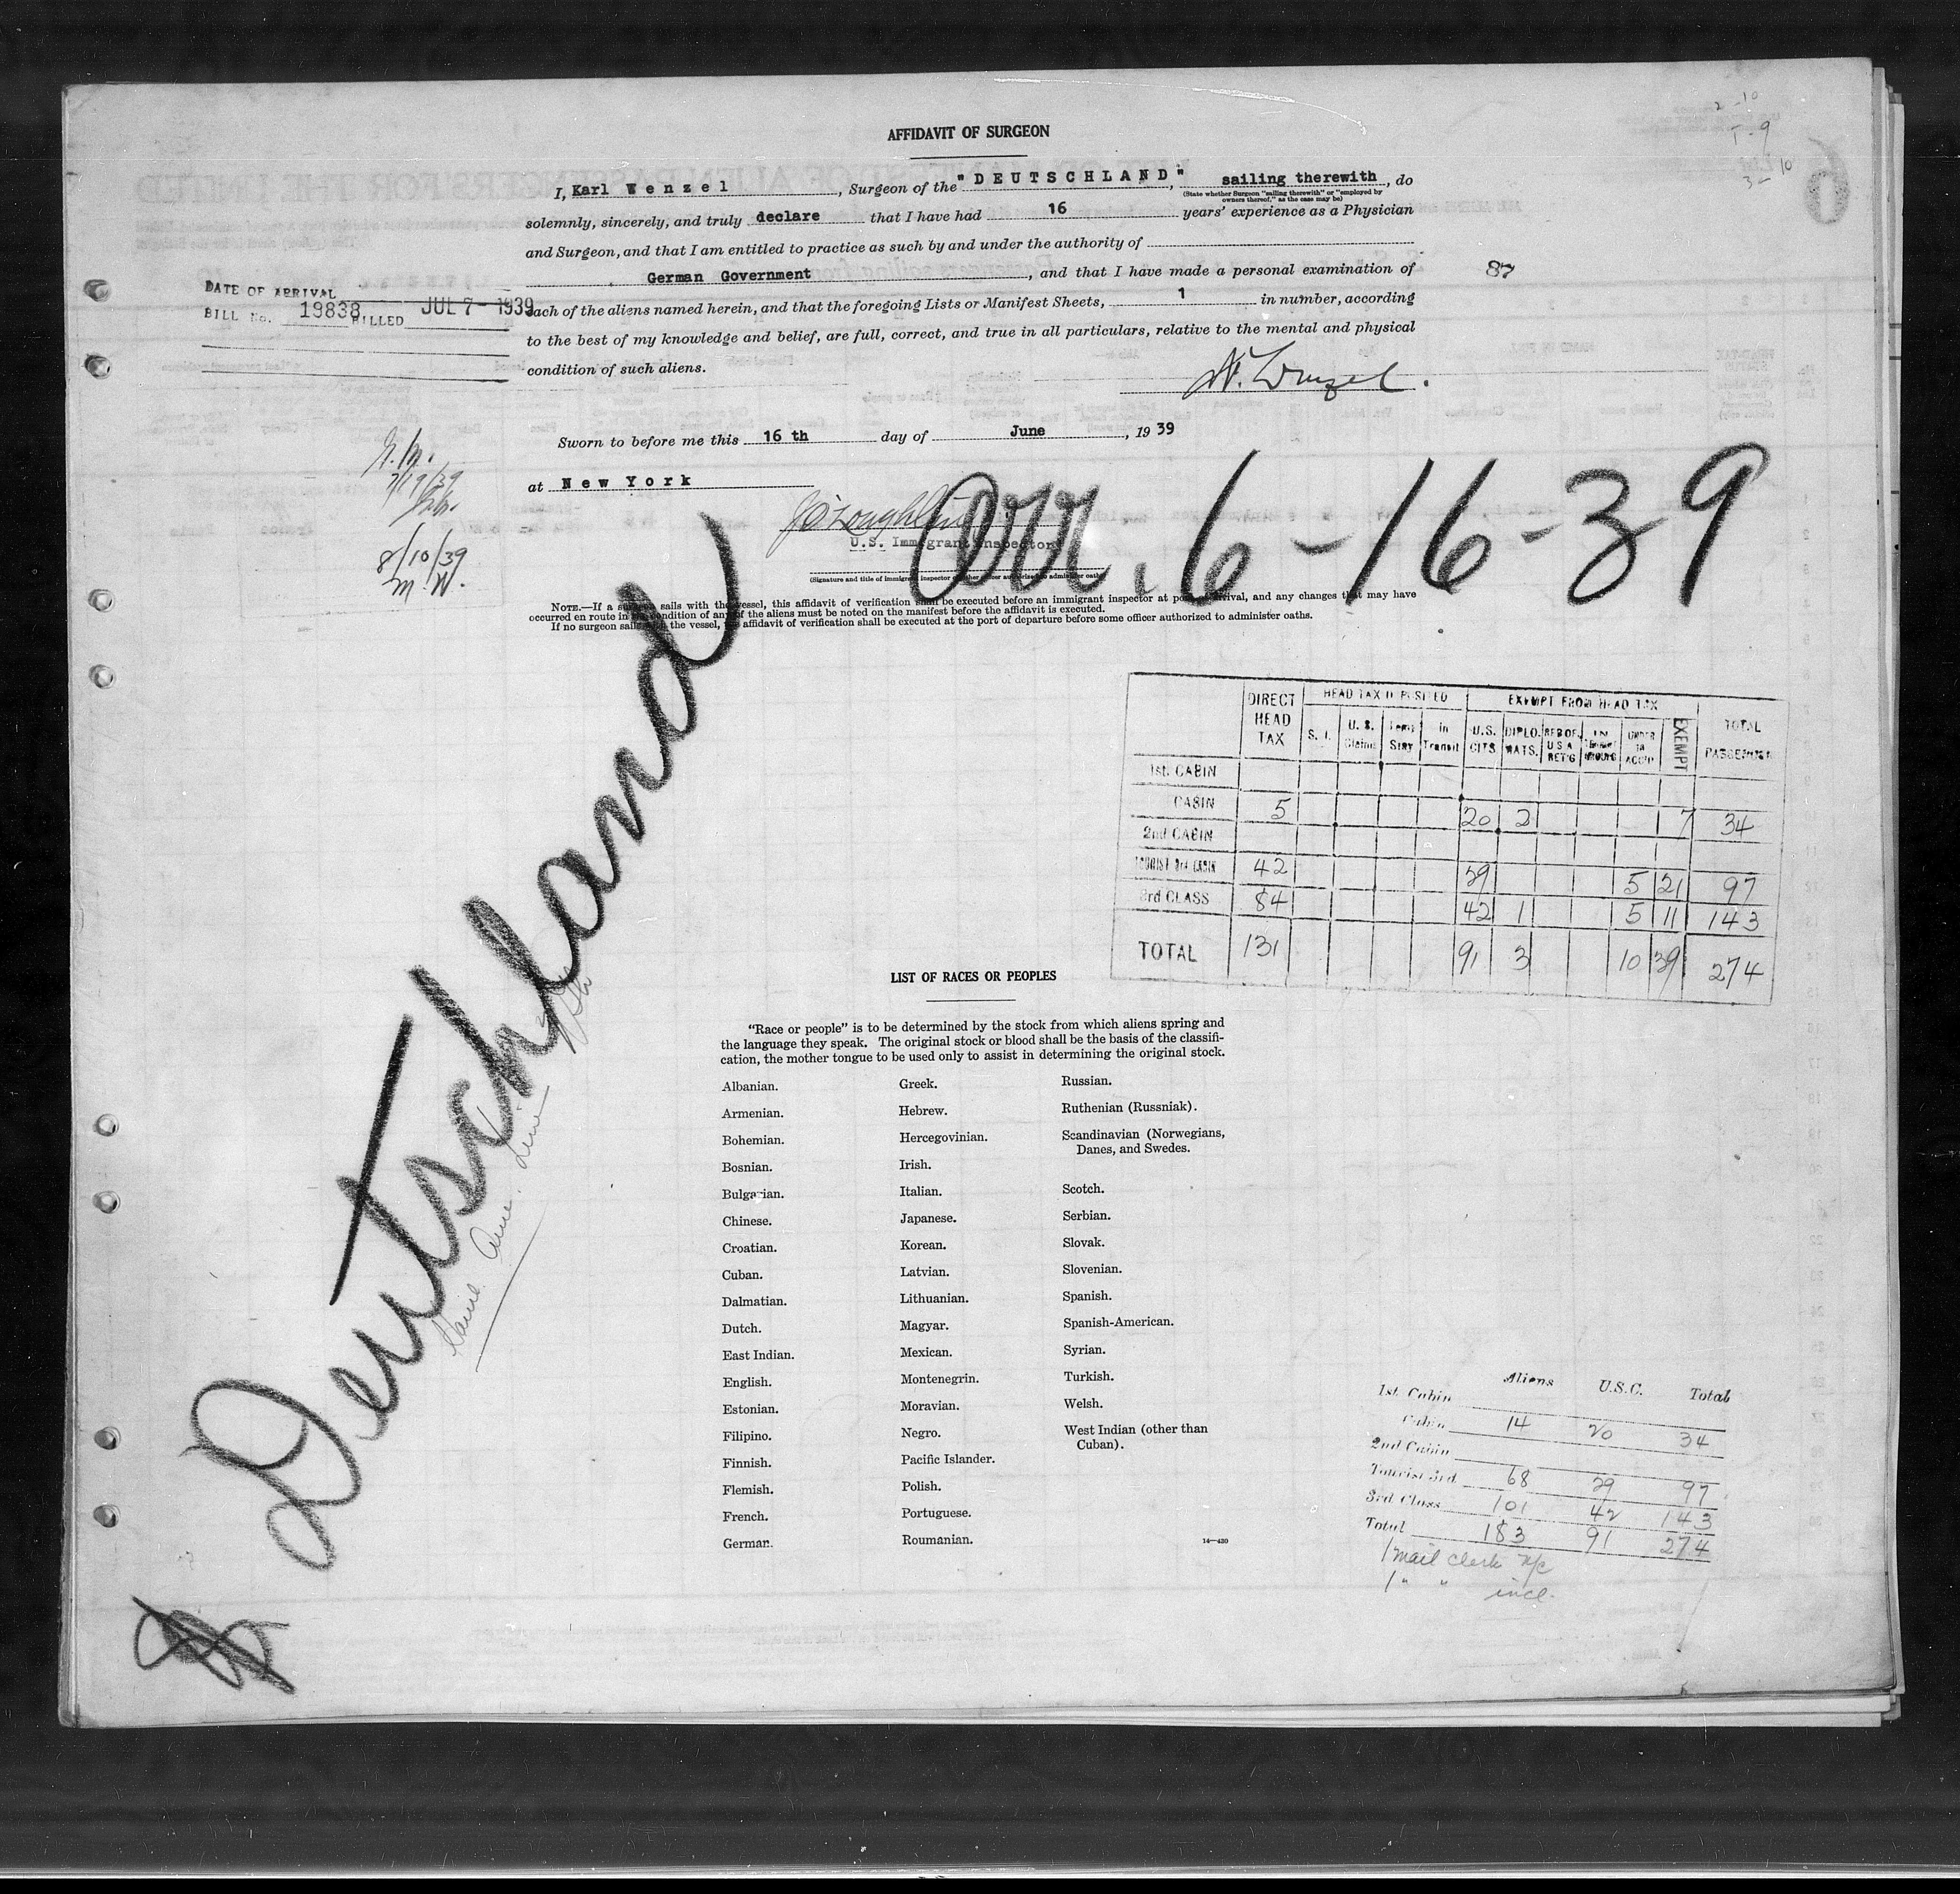 2-10
1-9
3-10
6
AFFIDAVIT OF SURGEON
I, Karl Wenzel, Surgeon of the "DEUTSCHLAND", sailing therewith, do
(State whether Surgeon "sailing therewith" or "employed by
owners thereof," as the case may be)
solemnly, sincerely, and truly declare that I have had 16 years' experience as a Physician
and Surgeon, and that I am entitled to practice as such by and under the authority of
German Government, and that I have made a personal examination of
87
DATE OF ARRIVAL
BILL No. 19838 BILLED JUL 7 - 1939
each of the aliens named herein, and that the foregoing Lists or Manifest Sheets, 1 in number, according
to the best of my knowledge and belief, are full, correct, and true in all particulars, relative to the mental and physical
condition of such aliens.
Sworn to before me this 16 th day of June, 19 39
at New York
7/19/39
8/10/39
M.W.
J O'Loughlin
U.S. Immigrant Inspector
(Signature and title of immigrant inspector or other officer authorized to administer oaths)
Arr. 6-16-39
NOTE.—If a surgeon sails with the vessel, this affidavit of verification shall be executed before an immigrant inspector at port of arrival, and any changes that may have
occurred en route in the condition of any of the aliens must be noted on the manifest before the affidavit is executed.
If no surgeon sails with the vessel, the affidavit of verification shall be executed at the port of departure before some officer authorized to administer oaths.
Deutschland
DIRECT HEAD TAX HEAD TAX DEPOSITED EXEMPT FROM HEAD TAX TOTAL PASSENGER
S. I. U. S. Claims Temp Stay In Transit U.S. CITS DIPLO. MATS. RES OF U S A RET'G UNDER 16 ACC'D EXEMPT
1st. CABIN
CABIN 5 20 2 7 34
2nd CABIN
TOURIST 3rd CABIN 42 29 5 21 97
3rd CLASS 84 42 1 5 11 143
TOTAL 131 91 3 10 39 274
LIST OF RACES OR PEOPLES
"Race or people" is to be determined by the stock from which aliens spring and
the language they speak. The original stock or blood shall be the basis of the classifi-
cation, the mother tongue to be used only to assist in determining the original stock.
Albanian.
Armenian.
Bohemian.
Bosnian.
Bulgarian.
Chinese.
Croatian.
Cuban.
Dalmatian.
Dutch.
East Indian.
English.
Estonian.
Filipino.
Finnish.
Flemish.
French.
German.
Greek.
Hebrew.
Hercegovinian.
Irish.
Italian.
Japanese.
Korean.
Latvian.
Lithuanian.
Magyar.
Mexican.
Montenegrin.
Moravian.
Negro.
Pacific Islander.
Polish.
Portuguese.
Roumanian.
Russian.
Ruthenian (Russniak).
Scandinavian (Norwegians,
Danes, and Swedes.
Scotch.
Serbian.
Slovak.
Slovenian.
Spanish.
Spanish-American.
Syrian.
Turkish.
Welsh.
West Indian (other than
Cuban).
14—430
Aliens U.S.C. Total
1st. Cabin
Cabin 14 20 34
2nd Cabin
Tourist 3rd 68 29 97
3rd Class 101 42 143
Total 183 91 274
1 mail clerk n/c
1 " " incl.